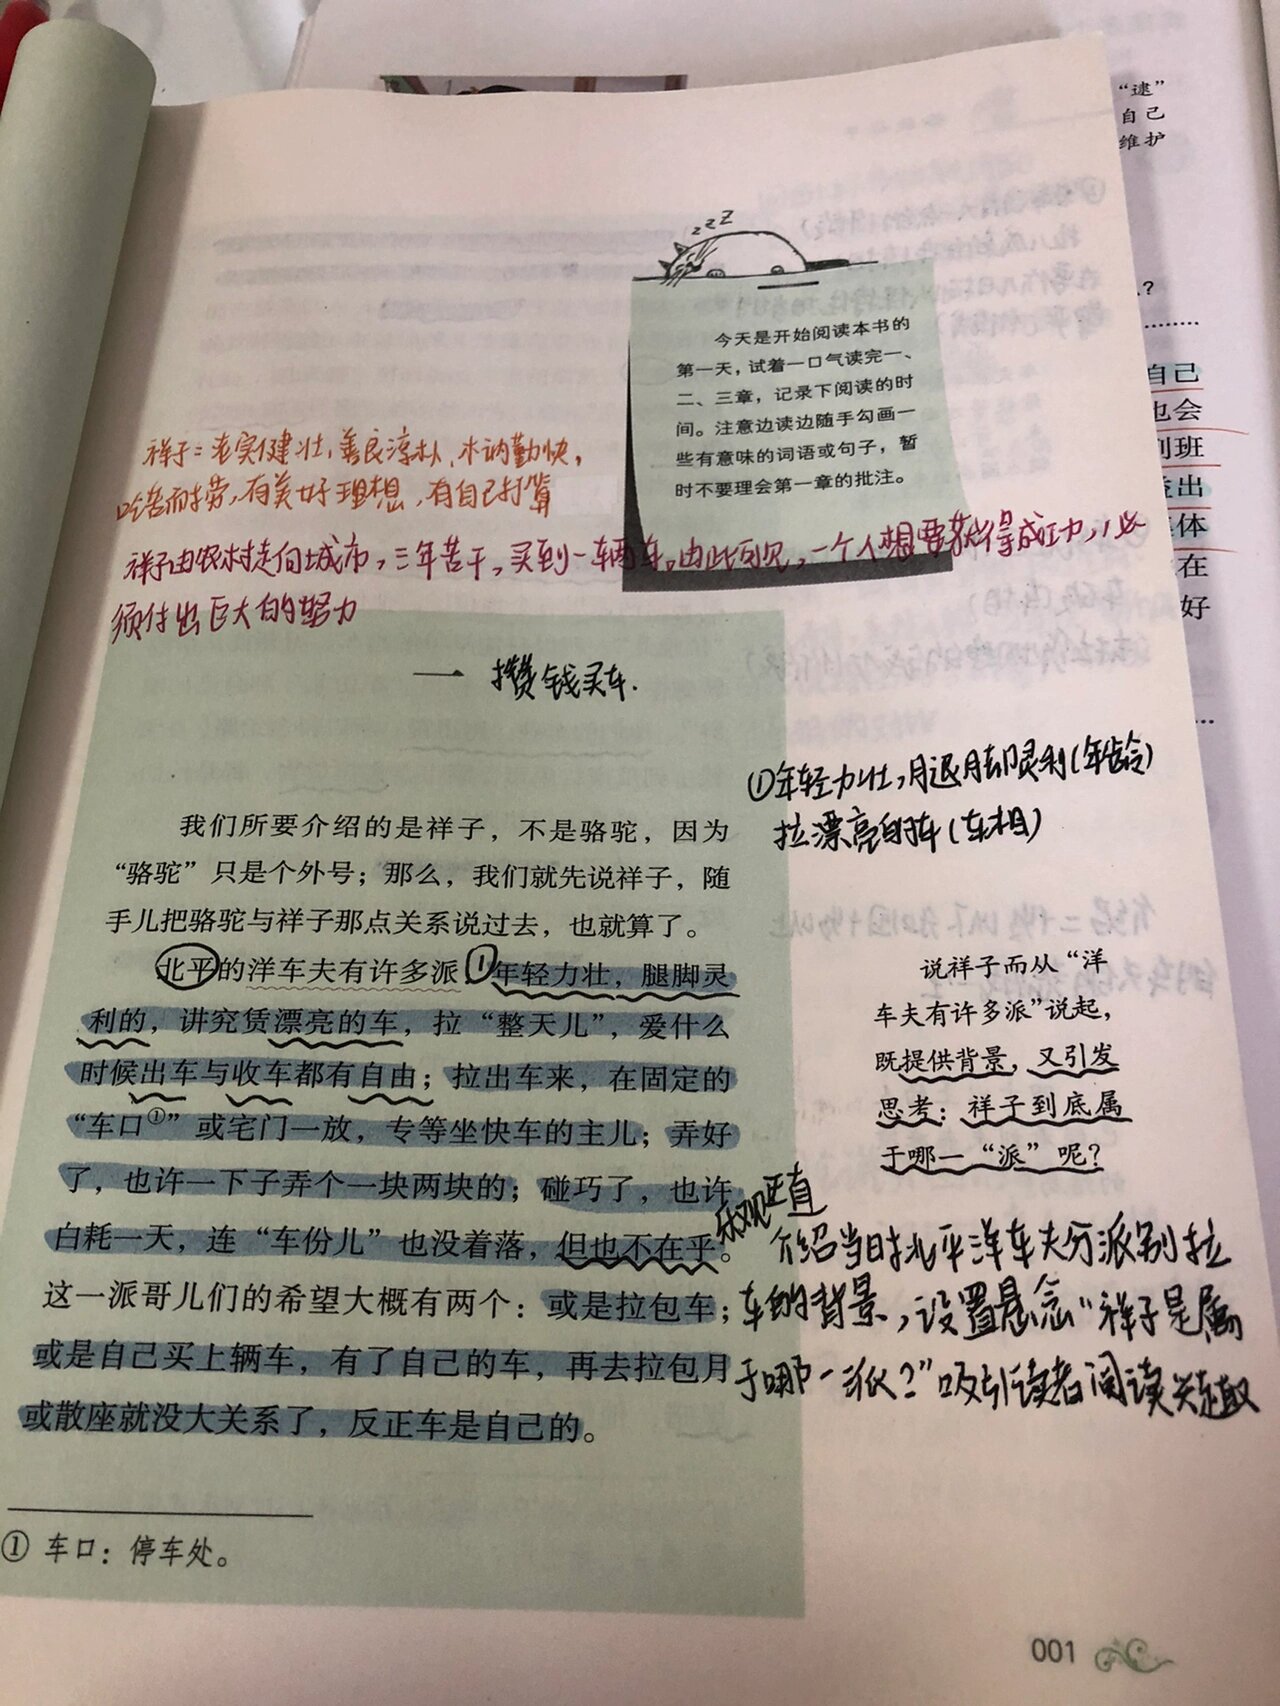 “逮”
自己
维护
zzZ
今天是开始阅读本书的
第一天，试着一口气读完一、
二、三章，记录下阅读的时
间。注意边读边随手勾画一
些有意味的词语或句子，暂
时不要理会第一章的批注。
自己
也会
列班
益出
集体
在
好
祥子：老实健壮，善良淳朴，木讷勤快，
吃苦而劳，有美好理想，有自己打算
祥子由农村走向城市，三年苦干，买到一辆车。由此可见，一个人想要获得成功，必
须付出巨大的努力
一 攒钱买车.
①年轻力壮，月退月却灵利（年龄）
拉漂亮的车（车相）
我们所要介绍的是祥子，不是骆驼，因为
“骆驼”只是个外号；那么，我们就先说祥子，随
手儿把骆驼与祥子那点关系说过去，也就算了。
北平的洋车夫有许多派①年轻力壮，腿脚灵
利的，讲究赁漂亮的车，拉“整天儿”，爱什么
时候出车与收车都有自由；拉出车来，在固定的
“车口①”或宅门一放，专等坐快车的主儿；弄好
了，也许一下子弄个一块两块的；碰巧了，也许
白耗一天，连“车份儿”也没着落，但也不在乎。
这一派哥儿们的希望大概有两个：或是拉包车；
或是自己买上辆车，有了自己的车，再去拉包月
或散座就没大关系了，反正车是自己的。
说祥子而从“洋
车夫有许多派”说起，
既提供背景，又引发
思考：祥子到底属
于哪一“派”呢？
乐观正直
介绍当时北平洋车夫分派别拉
车的背景，设置悬念“祥子是属
于哪一派？”吸引读者阅读兴趣
① 车口：停车处。
001